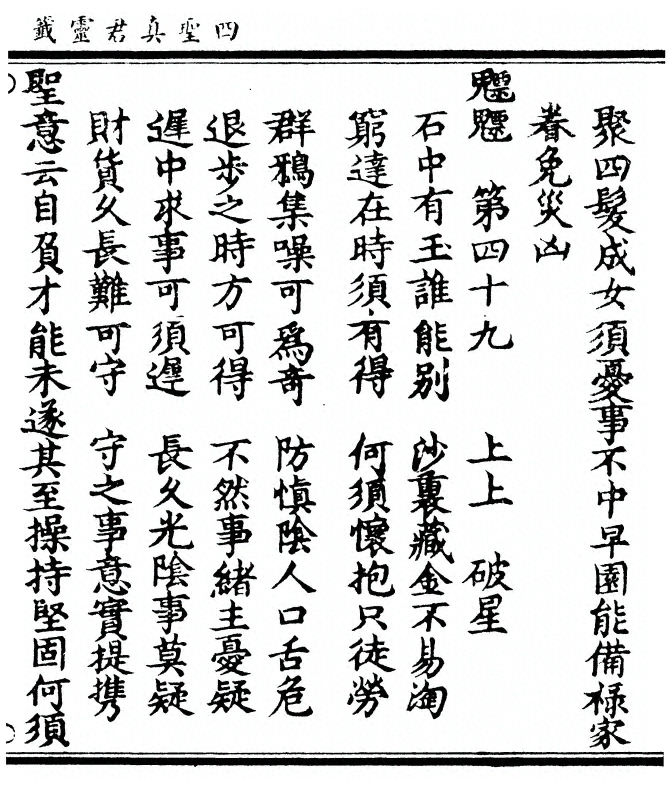 四聖真君靈籤
聚四髮成女須憂事不中早園能備祿家
眷免災凶
第四十九　上上　破星
石中有玉誰能别　沙裏藏金不易淘
窮達在時須有得　何須懷抱只徒勞
群鴉集噪可爲奇　防慎陰人口舌危
退步之時方可得　不然事緒主憂疑
遲中求事可須遲　長久光陰事莫疑
財貨久長難可守　守之事意實提携
聖意云自負才能未遂其至操持堅固何須